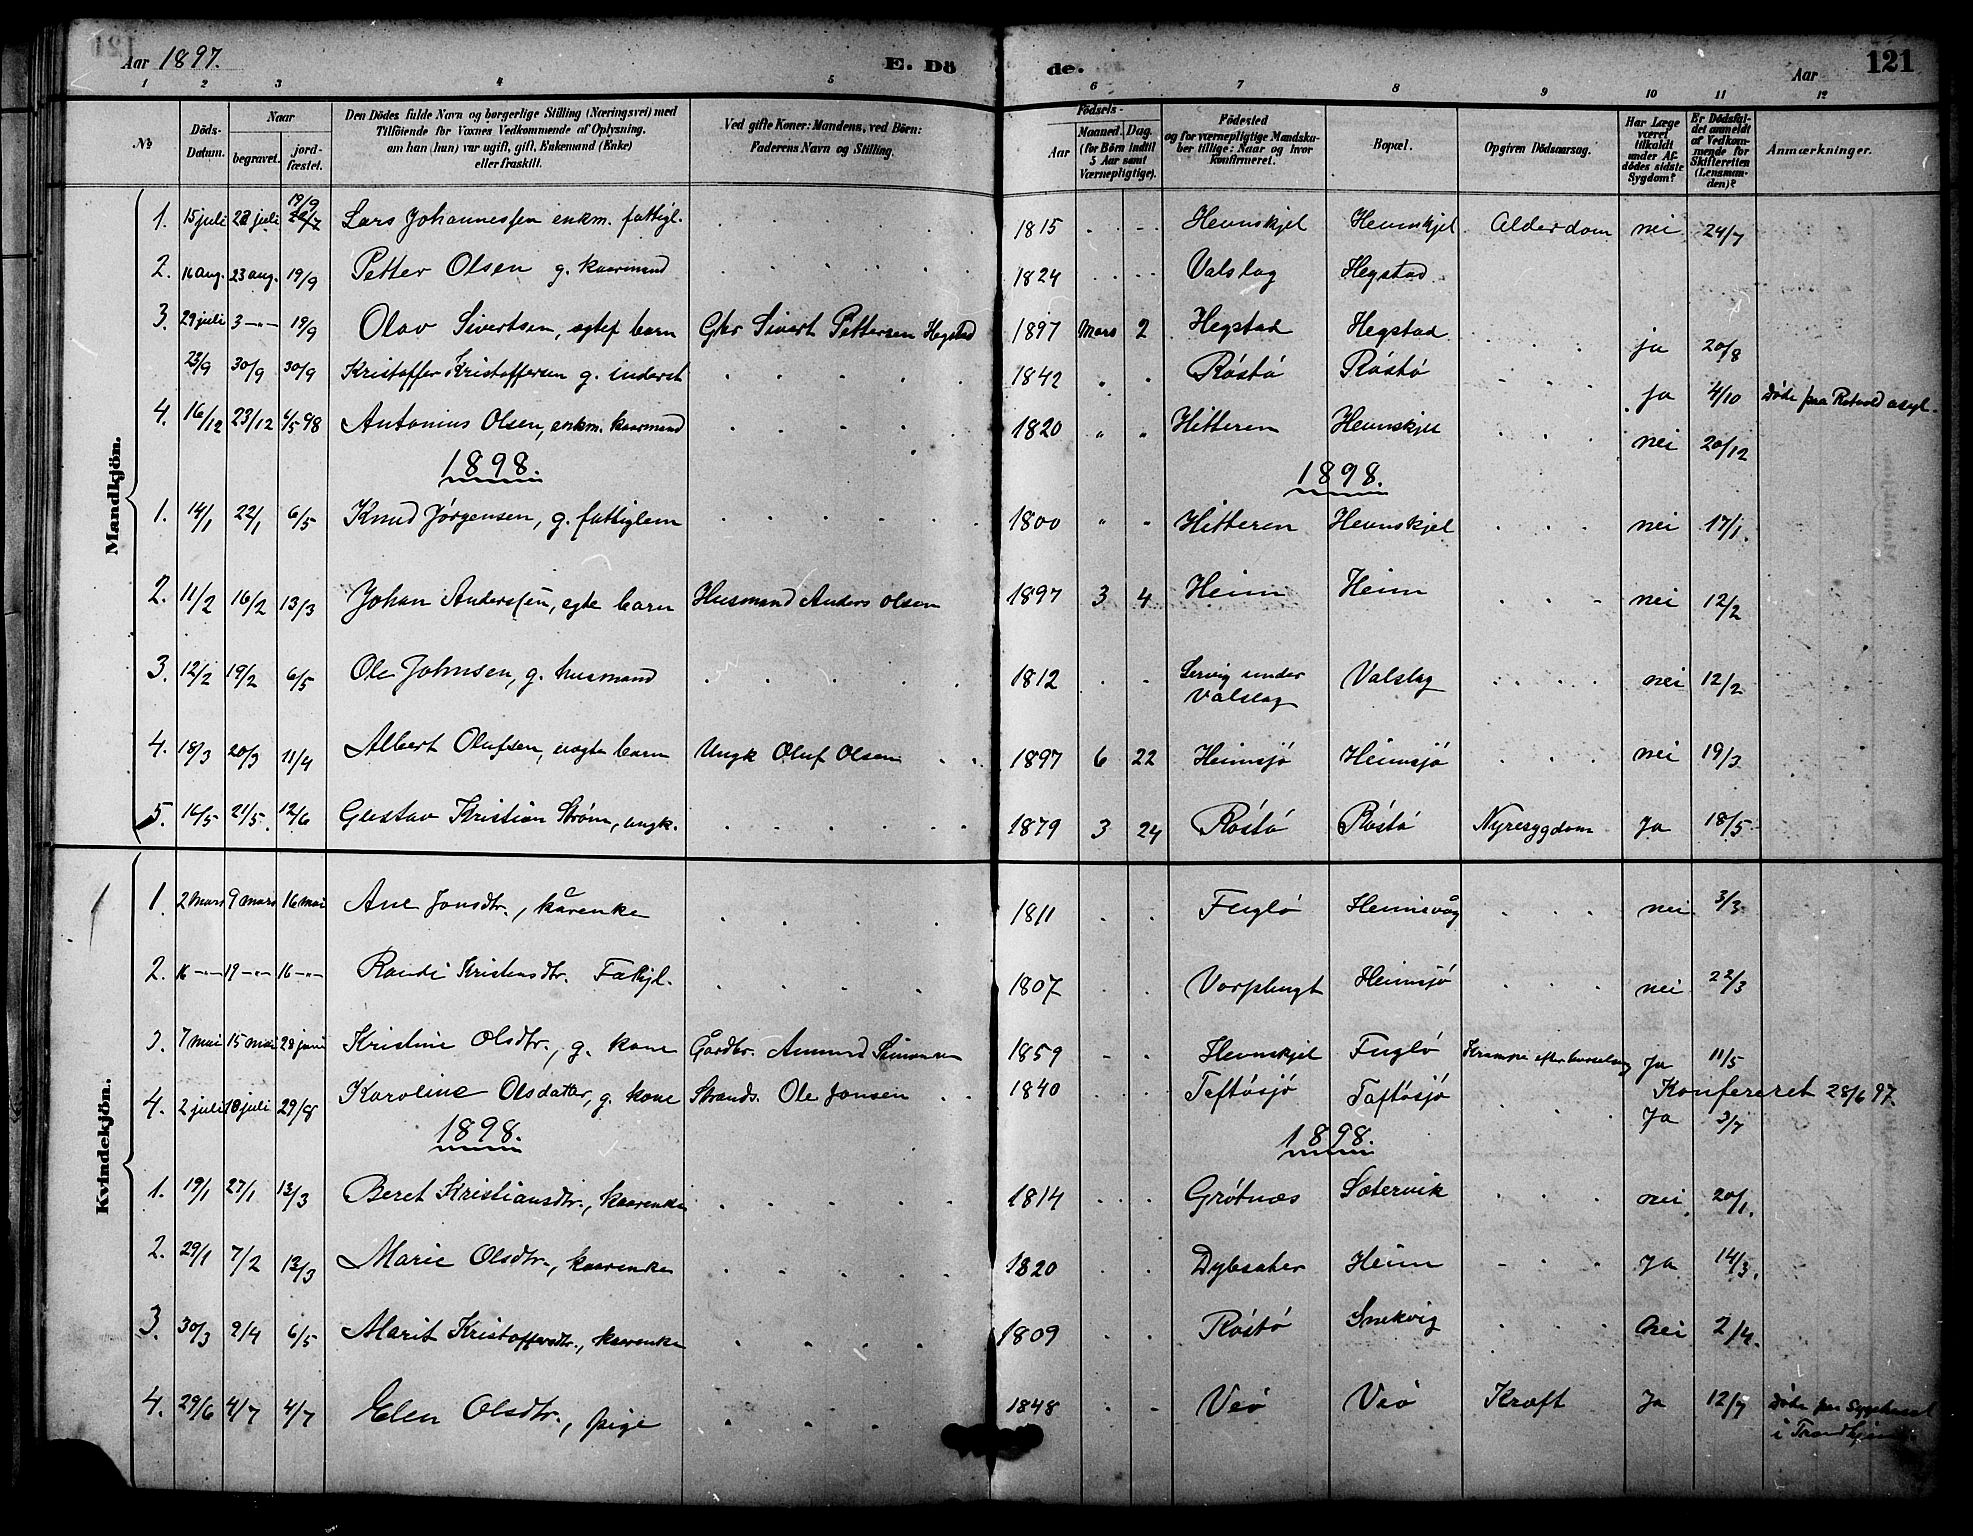 Aar 1897. E. Dö de. Aar 121
1 2 3 4 5 6 7 8 9 10 11 12
No Döds-Datum. Naar begravet. jordfæstet. Den Dödes fulde Navn og borgerlige Stilling (Næringsvei) med Tilföiende for Voxnes Vedkommende af Oplysning, om han (hun) var ugift, gift, Enkemand (Enke) eller fraskilt. Ved gifte Koner: Mandens, ved Börn: Faderens Navn og Stilling. Födsels- Aar Maaned. Dag. (for Börn indtil 5 Aar samt Værnepligtige). Födested og for værnepligtige Mandskaber tillige: Naar og hvor konfirmeret. Bopæl. Opgiven Dödsaarsag. Har Læge været tilkaldt under Afdödes sidste Sygdom? Er Dödsfaldet anmeldt af Vedkommende for Skifteretten (Lensmanden)? Anmærkninger.
Mandkjön.
1. 15 juli 22 juli 19/9 Lars Johannessen enkm. fattigl. 1815 Hevnskjel Hevnskjel Alderdom nei 24/7
2. 16 aug. 23 aug. 19/9 Petter Olsen g. kaarmand 1824 Valslag Hegstad
3. 29 juli 3 -"- 19/9 Olav Sivertsen, egtef barn Gbr Sivert Pettersen Hegstad 1897 Mars 2 Hegstad Hegstad. ja 20/8
23/9 30/9 30/9 Kristoffer Kristoffersen g. inderst 1842 " " Róstó Róstó Ja 4/10 Døde paa Rotvold asyl.
4. 16/12 23/12 6/5 98 Antonius Olsen, enkm. kaarmand 1820 " " Hitteren Hevnskjel nei 20/12
1898. 1898.
1. 14/1 22/1 6/5 Knud Jørgensen, g. fattiglem 1800 " " Hitteren Hevnskjel nei 17/1.
2. 11/2 16/2 13/3 Johan Anderssen, egte barn Husmand Anders Olsen 1897 3 4 Heim Heim nei 12/2
3. 12/2 19/2 6/5 Ole Johnsen, g. husmand 1812 under Valslag Valslag nei 12/2
4. 18/3 20/3 11/4 Albert Olufsen, uegte barn Ungk Oluf Olsen 1897 6 22 Heimsjó Heimsjó nei 19/3
5. 16/5 21/5. 12/6 Gustav Kristian Strøm, ungk. 1879 3 24 Róstó Róstó Nyresygdom Ja 18/5
Kvindekjön.
1. 2 mars 9 mars 16 mai Ane Jonsdtr., kårenke 1811 Fugló Heimsvåg nei 3/3
2. 16 -"- 19 -"- 16 -"- Randi Kristensdtr. 1807 Heimsjó nei 22/3
3. 7 mai 15 mai 29 juni Kristine Olsdtr., g. kone Gårdbr. Amund Simonsen 1859 Hevnskjel Fugló Krampe efter barselseng Ja 11/5
4. 2 juli 10 juli 29/8 Karoline Olsdatter, g. kone Strands. Ole Jonsen 1840 Taftósjó Taftósjó Konfereret 28/6 97. Ja 3/7
1898. 1898.
1. 19/1 27/1 13/3 Beret Kristiansdtr., kaarenke 1814 Grótnæs Sætervik nei 20/1.
2. 29/1 7/2 13/3 Marie Olsdtr., kaarenke 1820 Dybsæter Heim Ja 14/3.
3. 30/3 2/4 6/5 Marit Kristoffersdtr., kaarenke 1809 Róstó Snekvig nei 2/4.
4. 29/6 4/7 4/7 Elen Olsdtr., pige 1848 Veó Veó Kræft Ja 12/7 Døde paa Sygehuset
i Trondhjem.